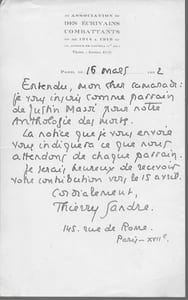 ASSOCIATION
DES ÉCRIVAINS
COMBATTANTS
DE 1914 A 1919
PARIS, 16 mars 192
Entendu, mon cher camarade:
je vous inscris comme parrain
de Justin Massé pour notre
Anthologie des morts.
La notice que je vous envoie
vous indiquera ce que nous
attendons de chaque parrain.
Je serais heureux de recevoir
votre contribution vers le 15 avril.
Cordialement,
Thierry Sandre.
145, rue de Rome.
Paris-XVIIe.